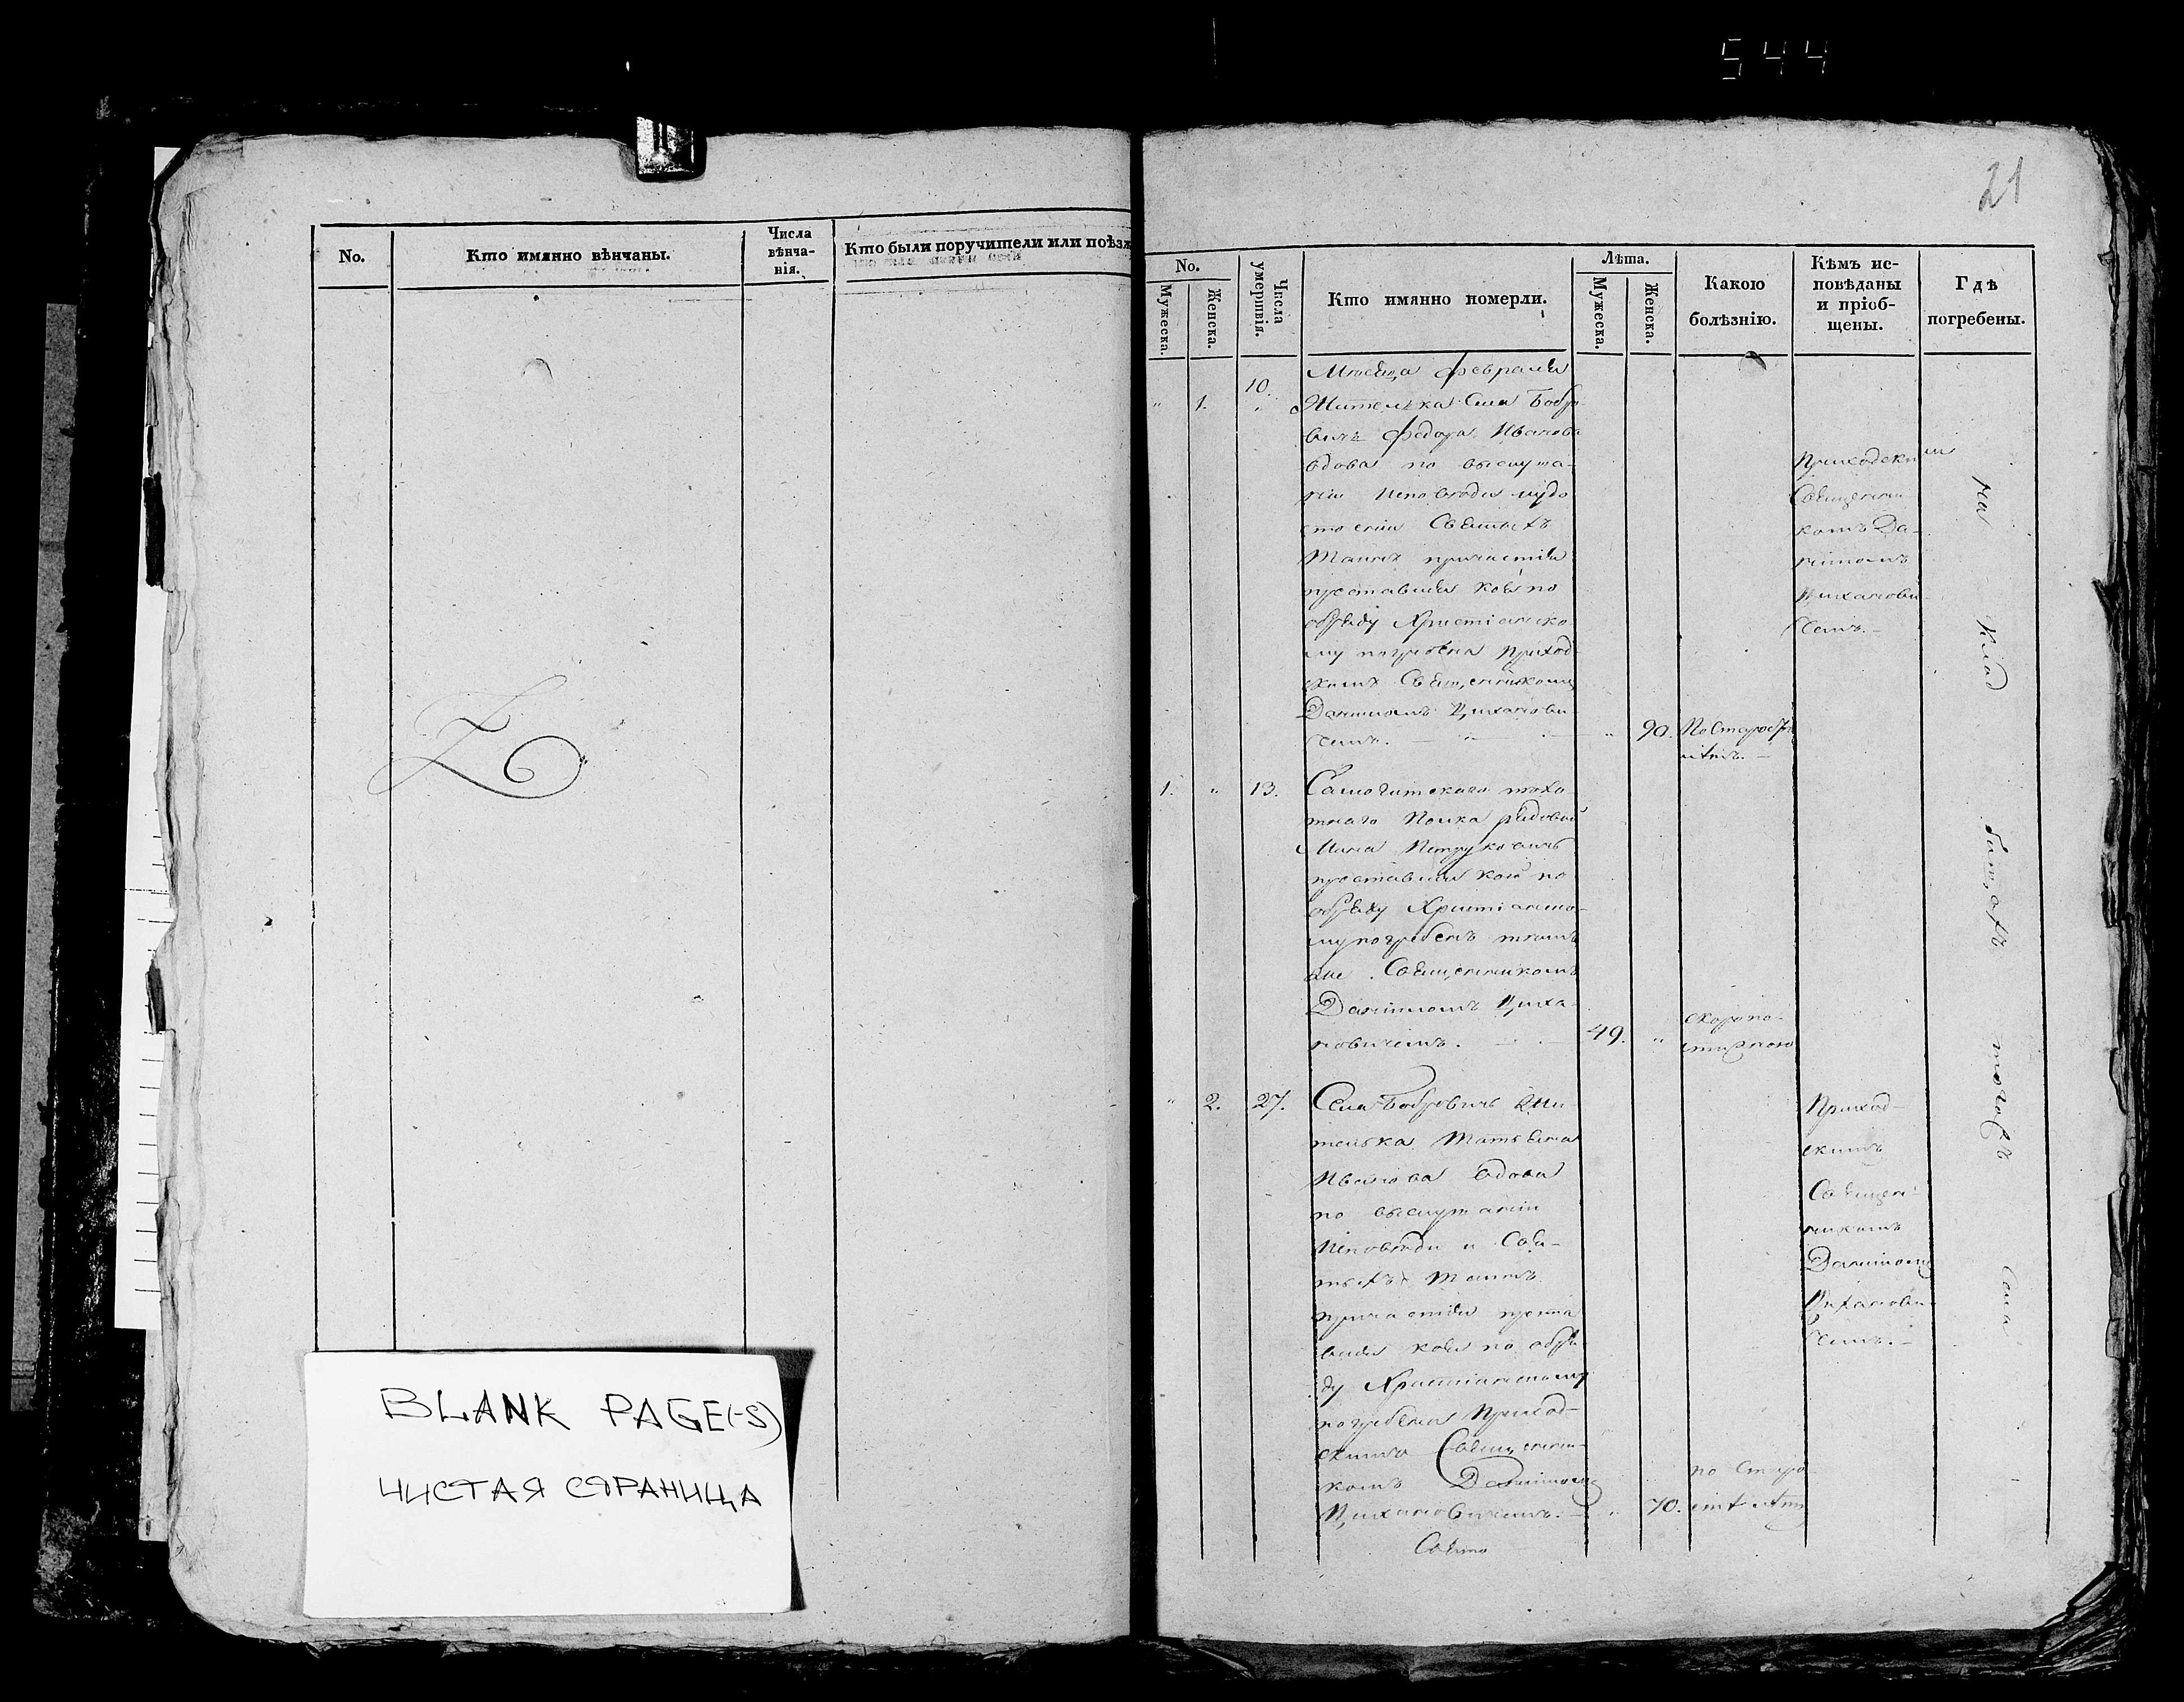 544
21
No.
Кто имянно вѣнчаны.
Числа
вѣнча-
нія.
Кто были поручители или поѣзж
BLANK PAGE(-S)
ЧИСТАЯ СТРАНИЦА
No.
Мужеска.
Женска.
Числа
умертвія.
Кто имянно померли.
Лѣта.
Мужеска.
Женска.
Какою
болѣзнію.
Кѣмъ ис-
повѣданы
и пріоб-
щены.
Гдѣ
погребены.
Мѣсяца Февраля
" 1. 10. " Жителька Села Бобро
вичь Федора Иванова
вдова по выслуша-
ніи Исповѣди иудо
стоеніи Святыхъ
Таинъ причастія
преставися коя по
обряду Христіанско
му погребена Приход
скимъ Священникомъ
Даніиломъ Цихинови
чемъ. " 90. По Старос
лѣтъ.
Приходскимъ
Священни
комъ Да-
ніиломъ
Цихинови
чемъ.
1. " 13. Самогитскаго пѣхо
тнаго Полка рядовой
Мина Петрукович
преставися кой по
обряду Христіанско-
му погребенъ тѣмъ
же Священникомъ
Даніиломъ Циха-
новичемъ. 49. " скоропо-
стижною
" 2. 27. Села Бобровичь жи
телька Татьяна
Иванова вдова
по выслушаніи
Исповѣди и Свя-
тыхъ Таинъ
причастія преста
вися коя по обря
ду Христіанскому
погребена Приход-
скимъ Священни-
комъ Даніиломъ
Цихановичемъ. " 70. по Старо
сти лѣтъ
Приход-
скимъ
Священ-
никомъ
Даніиломъ
Цихинови-
чемъ.
на клад бищахъ тогожъ Села
Свято